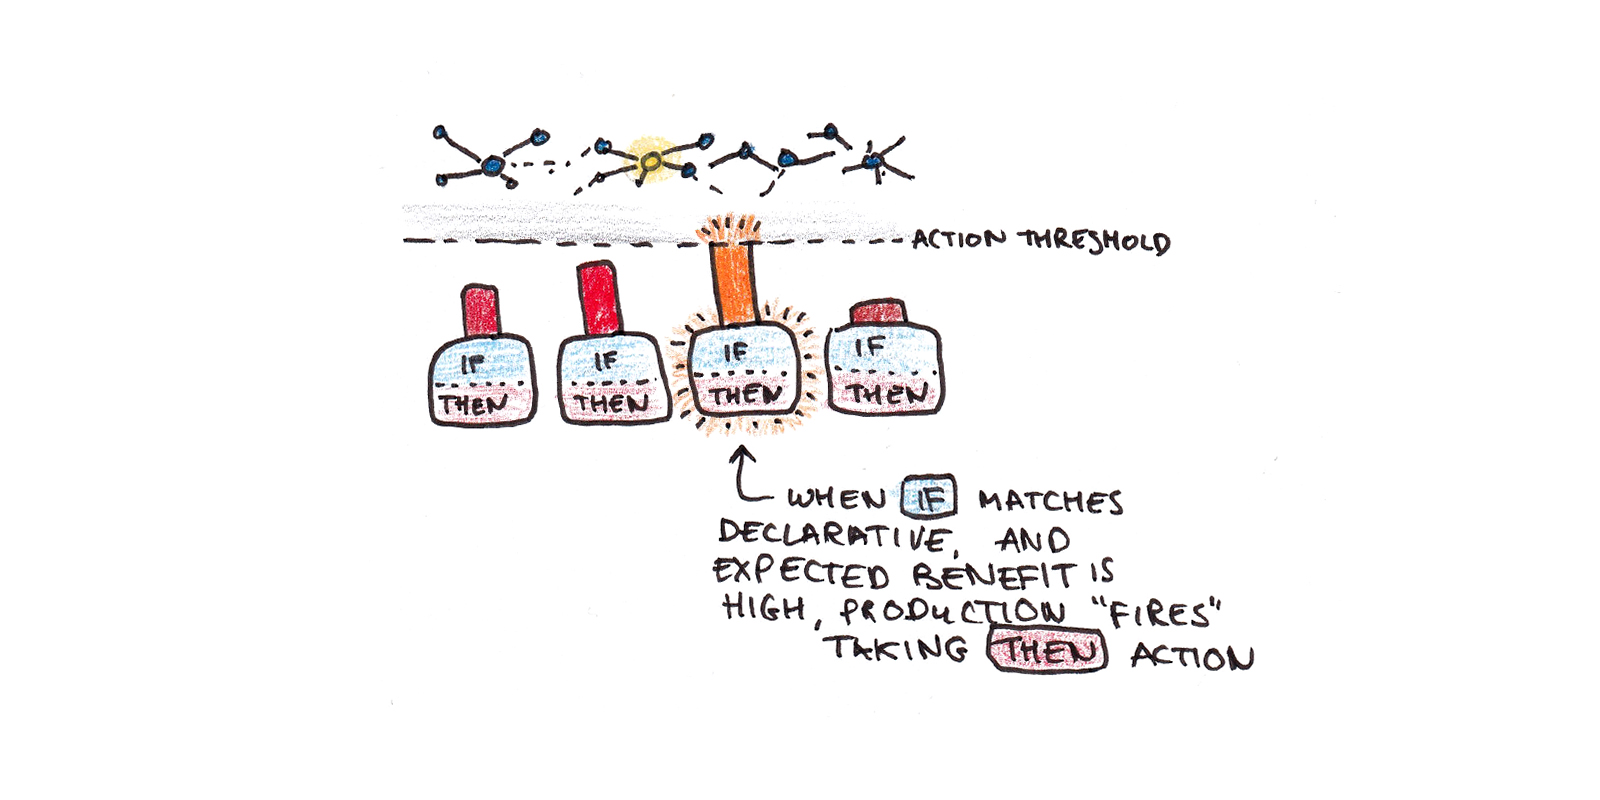 ACTION THRESHOLD
IF IF IF IF
THEN THEN THEN THEN
WHEN IF MATCHES
DECLARATIVE, AND
EXPECTED BENEFIT IS
HIGH, PRODUCTION "FIRES"
TAKING THEN ACTION